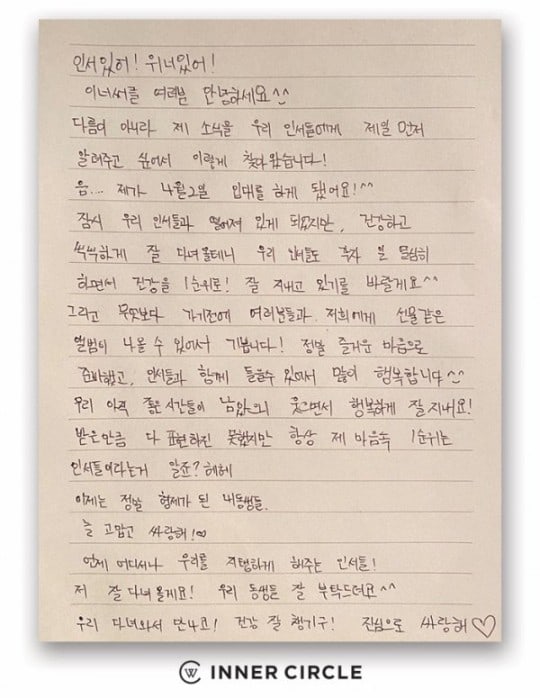 인서있어! 위너있어!
이너써클 여러분 안녕하세요^^
다름이 아니라 제 소식을 우리 인서들에게 제일 먼저
알려주고 싶어서 이렇게 찾아왔습니다!
음.... 제가 4월2일 입대를 하게 됐어요!^^
잠시 우리 인서들과 떨어져 있게 되었지만, 건강하고
씩씩하게 잘 다녀올테니 우리 인서들도 각자 일 열심히
하면서 건강을 1순위로! 잘 지내고 있기를 바랄게요^^
그리고 무엇보다 가기전에 여러분들과 저희에게 선물같은
앨범이 나올 수 있어서 기쁩니다! 정말 즐거운 마음으로
준비했고, 인서들과 함께 들을수 있어서 많이 행복합니다^^
우리 아직 좋은시간들이 남았으니 웃으면서 행복하게 잘지내요!
받은만큼 다 표현하진 못했지만 항상 제 마음속 1순위는
인서들이라는거 알죠? 헤헤
이제는 정말 형제가 된 내동생들.
늘 고맙고 싸랑해!♡
언제 어디서나 우리를 지탱하게 해주는 인서들!
저 잘다녀올게요! 우리 동생들 잘 부탁드려요^^
우리 다녀와서 만나고! 건강 잘 챙기구! 진심으로 싸랑해♡
INNER CIRCLE